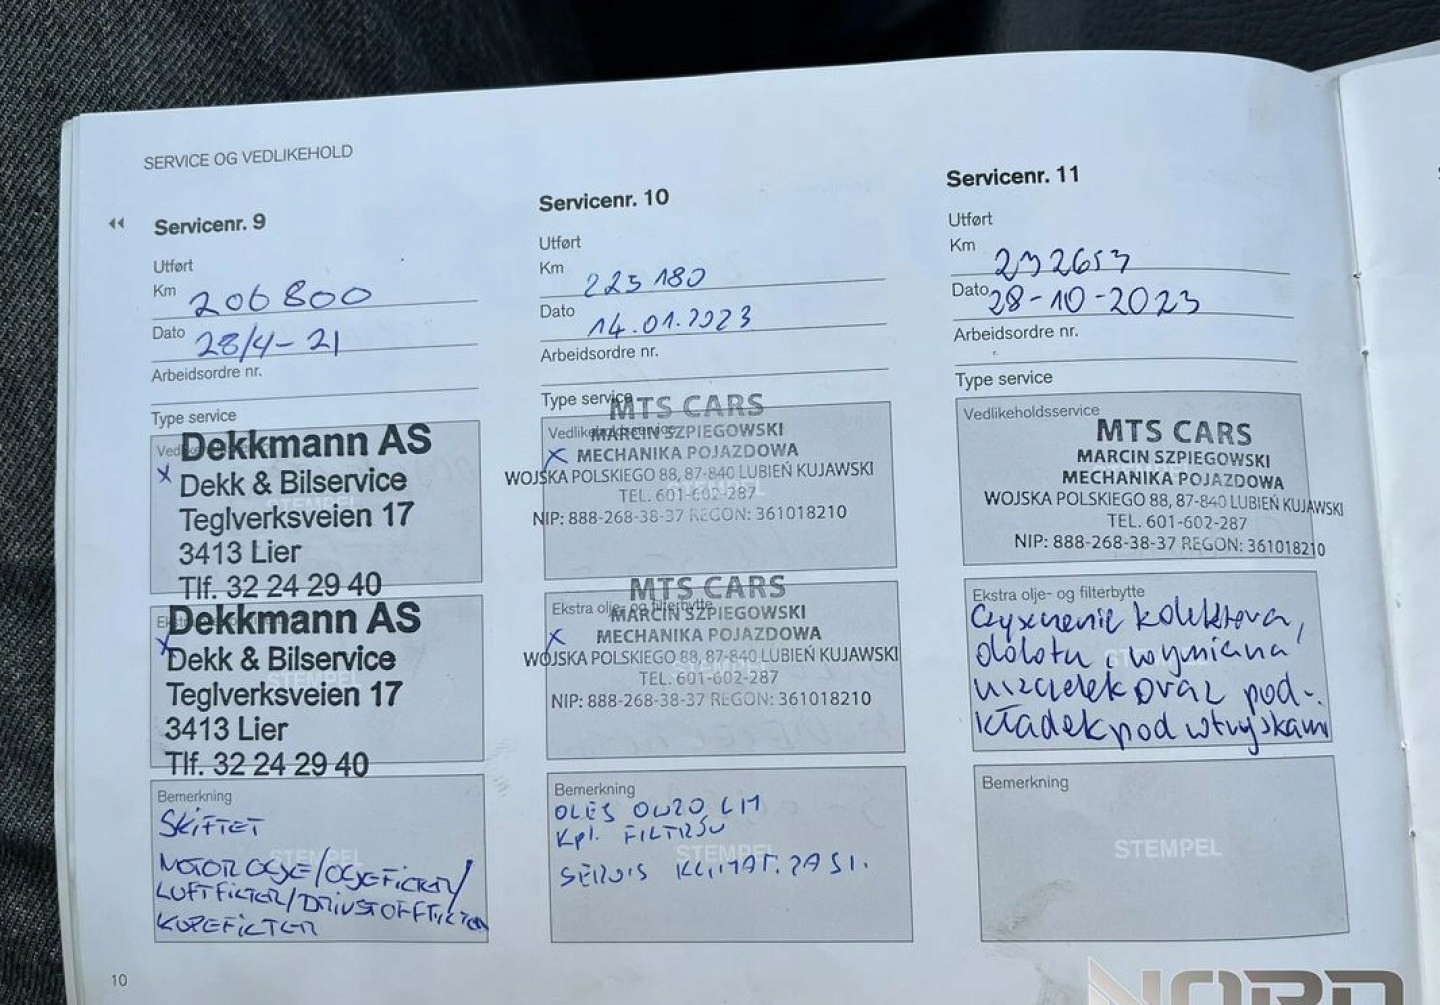 SERVICE OG VEDLIKEHOLD
Servicenr. 9
Utført
Km 206 800
Dato 28/4-21
Arbeidsordre nr.
Type service
x
Dekkmann AS
Dekk & Bilservice
Teglverksveien 17
3413 Lier
Tlf. 32 24 29 40
x
Dekkmann AS
Dekk & Bilservice
Teglverksveien 17
3413 Lier
Tlf. 32 24 29 40
Bemerkning
SKIFTET
MOTOR OLJE/OLJEFILTER/
LUFTFILTER/DRIVSTOFFFILTER
KUPEFILTER
10
Servicenr. 10
Utført
Km 225 180
Dato 14.01.2023
Arbeidsordre nr.
Type service
Vedlikeholdsservice
x
MTS CARS
MARCIN SZPIEGOWSKI
MECHANIKA POJAZDOWA
WOJSKA POLSKIEGO 88, 87-840 LUBIEŃ KUJAWSKI
TEL. 601-602-287
NIP: 888-268-38-37 REGON: 361018210
Ekstra olje- og filterbytte
x
MTS CARS
MARCIN SZPIEGOWSKI
MECHANIKA POJAZDOWA
WOJSKA POLSKIEGO 88, 87-840 LUBIEŃ KUJAWSKI
TEL. 601-602-287
NIP: 888-268-38-37 REGON: 361018210
Bemerkning
STEMPEL
OLEJ 0W20 LM
Kpl. FILTRÓW
SERWIS KLIMATYZACJI.
Servicenr. 11
Utført
Km 232653
Dato 28-10-2023
Arbeidsordre nr.
Type service
Vedlikeholdsservice
MTS CARS
MARCIN SZPIEGOWSKI
MECHANIKA POJAZDOWA
WOJSKA POLSKIEGO 88, 87-840 LUBIEŃ KUJAWSKI
TEL. 601-602-287
NIP: 888-268-38-37 REGON: 361018210
Ekstra olje- og filterbytte
Czyszczenie kolektora,
dolotu i wymiana
uszczelek oraz pod-
kładek pod wtryskami
Bemerkning
STEMPEL
NORD